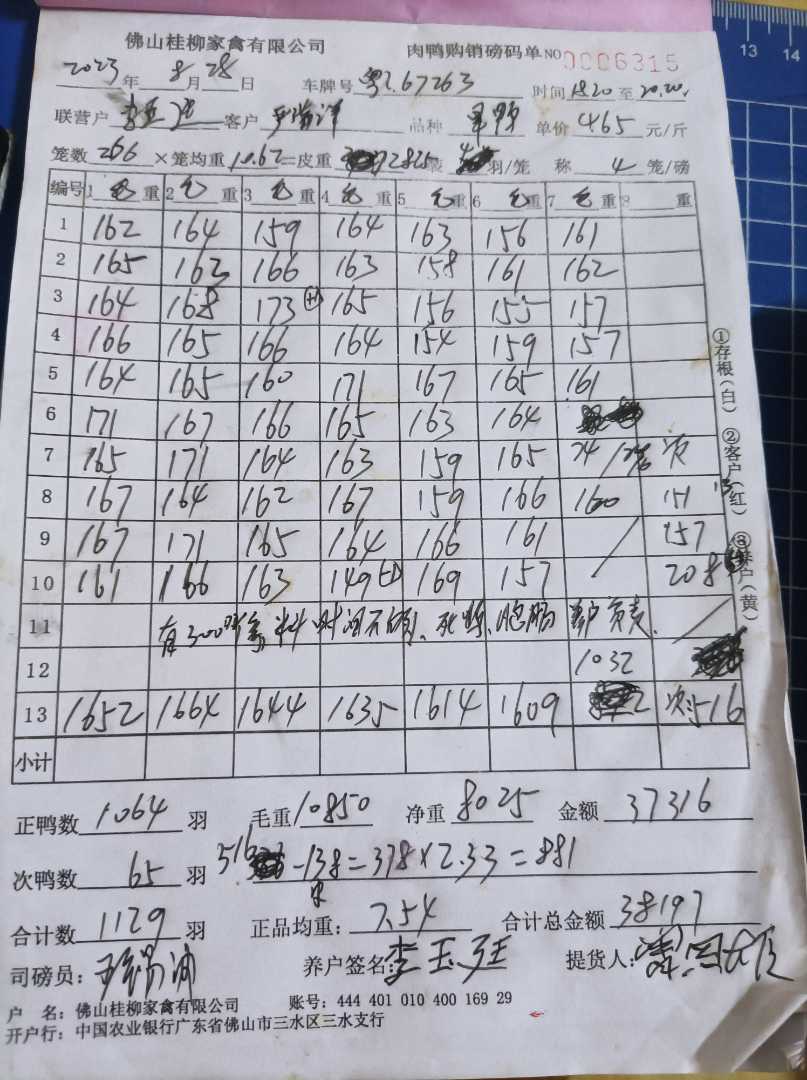 佛山桂柳家禽有限公司 肉鸭购销磅码单 NO 0006315
2023年 8月28日 车牌号 粤Z.67263 时间 18.20 至 20.20
联营户 客户 品种 单价 4.65 元/斤
笼数 266 ×笼均重 10.62 =皮重 2825 装 羽/笼 称 4 笼/磅
编号 1 毛 重 2 毛 重 3 毛 重 4 毛 重 5 重 6 毛 重 7 毛 重 8 重
1 162 164 159 164 163 156 161
2 165 162 166 163 158 161 162
3 164 168 173 (+1) 165 156 155 157
4 166 165 166 164 154 159 157
5 164 165 160 171 167 165 161
6 171 167 166 165 163 164
7 165 171 164 163 159 165 74 / 次
8 167 164 162 167 159 166 160 151
9 167 171 165 164 166 161 / 157
10 161 166 163 149 (-1) 169 157 208
11 有300 料 时间不 死鸭 养户负责. /
12 1032
13 1652 1664 1644 1635 1614 1609 次:516
小计
正鸭数 1064 羽 毛重 10850 净重 8025 金额 37316
次鸭数 65 羽 516 -138=378×2.33=881
合计数 1129 羽 正品均重: 7.54 合计总金额 38197
司磅员: 养户签名: 李玉 提货人:
户 名: 佛山桂柳家禽有限公司 账号: 444 401 010 400 169 29
开户行: 中国农业银行广东省佛山市三水区三水支行
①存根(白) ②客户(红) ③养户(黄)
13 14